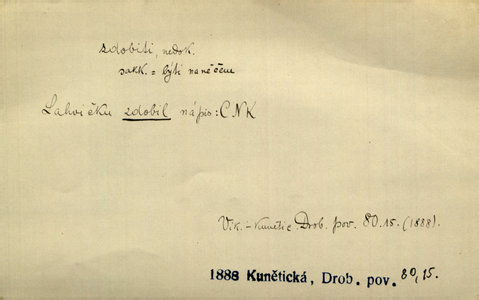 zdobiti, nedok.
sakk. = býti na něčem
Lahvičku zdobil nápis: CNK
Vik.-Kunětic. Drob. pov. 80.15. (1888).
1888 Kunětická, Drob. pov. 80,15.